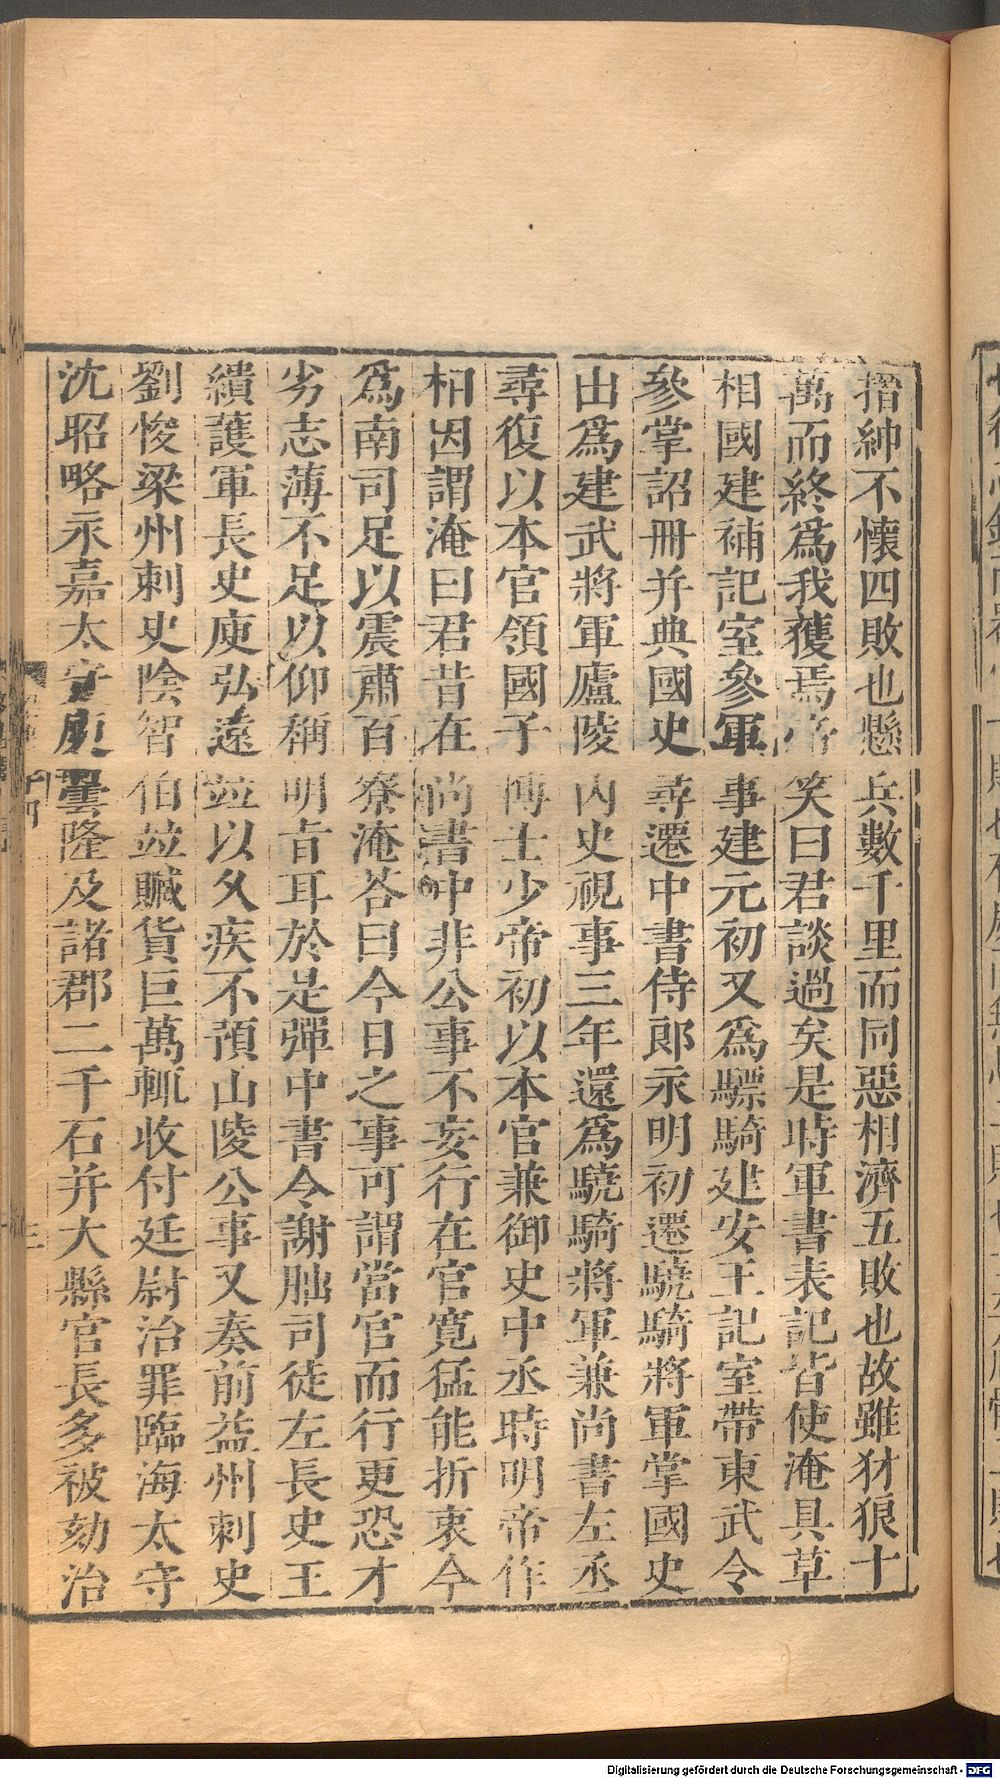 搢紳不懷四敗也懸兵數千里而同惡相濟五敗也故雖犲狼十
萬而終爲我獲焉帝笑曰君談過矣是時軍書表記皆使淹具草
相國建補記室參軍事建元初又爲驃騎建安王記室帶東武令
參掌詔冊并典國史尋遷中書侍郎永明初遷驍騎將軍掌國史
出爲建武將軍廬陵內史視事三年還爲驍騎將軍兼尚書左丞
尋復以本官領國子博士少帝初以本官兼御史中丞時明帝作
相因謂淹曰君昔在尚書中非公事不妄行在官寛猛能折衷今
爲南司足以震肅百寮淹荅曰今日之事可謂當官而行更恐才
劣志薄不足以仰稱明旨耳於是彈中書令謝朏司徒左長史王
繢護軍長史庾弘遠竝以久疾不預山陵公事又奏前益州刺史
劉悛梁州刺史陰智伯竝贓貨巨萬輒收付廷尉治罪臨海太守
沈昭略永嘉太守庾曇隆及諸郡二千石并大縣官長多被劾治
Digitalisierung gefördert durch die Deutsche Forschungsgemeinschaft - DFG